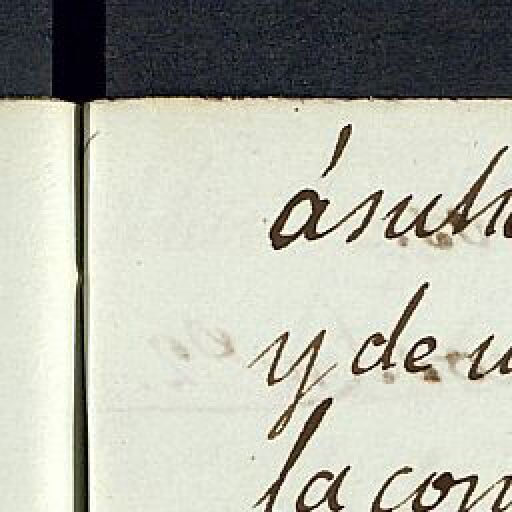 á su
y de
la con